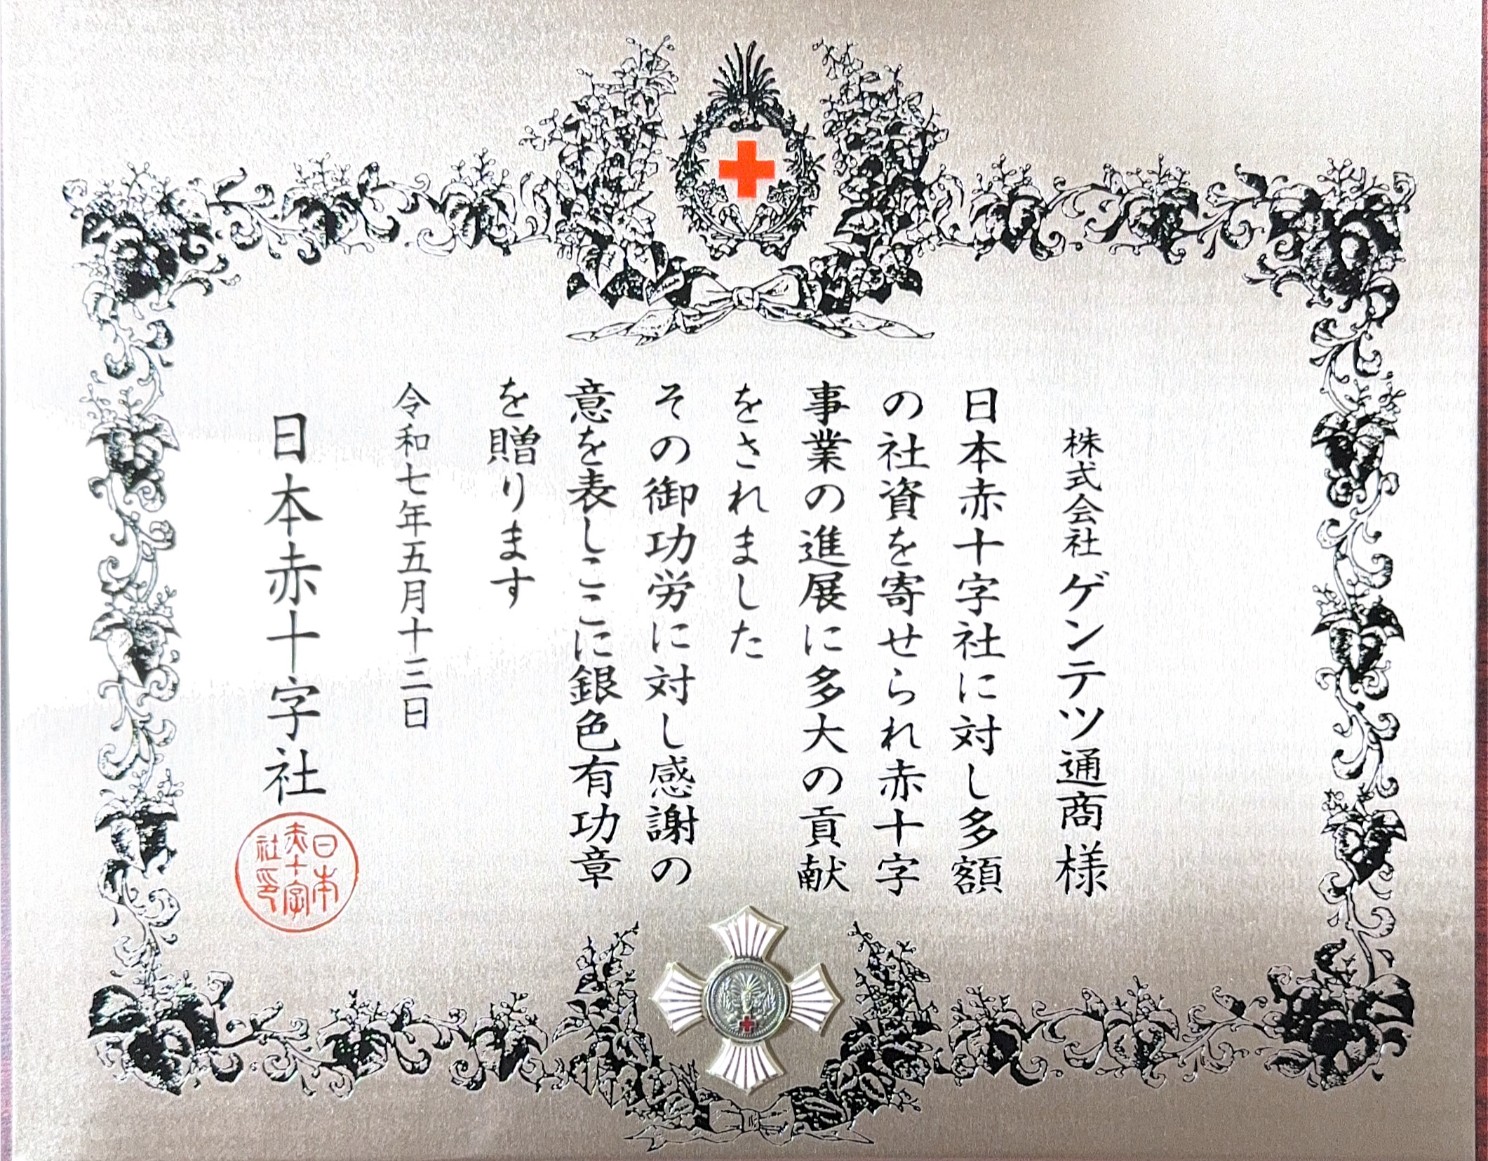 株式会社ゲンテツ通商様
日本赤十字社に対し多額
の社資を寄せられ赤十字
事業の進展に多大の貢献
をされました
その御功労に対し感謝の
意を表しここに銀色有功章
を贈ります
令和七年五月十三日
日本赤十字社
日本
赤十字
社印